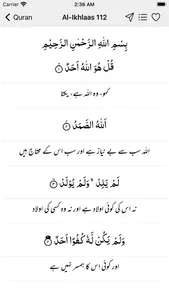 Carrier
2:36 AM
Quran
Al-Ikhlaas 112
بِسْمِ اللهِ الرَّحْمٰنِ الرَّحِيْمِ
قُلْ هُوَ اللهُ اَحَدٌ ۝۱
کہو، وہ اللہ ہے، یکتا
اَللهُ الصَّمَدُ ۝۲
اللہ سب سے بے نیاز ہے اور سب اس کے محتاج ہیں
لَمْ يَلِدْ ۙ وَلَمْ يُوْلَدْ ۝۳
نہ اس کی کوئی اولاد ہے اور نہ وہ کسی کی اولاد
وَلَمْ يَكُنْ لَّهٗ كُفُوًا اَحَدٌ ۝۴
اور کوئی اس کا ہمسر نہیں ہے